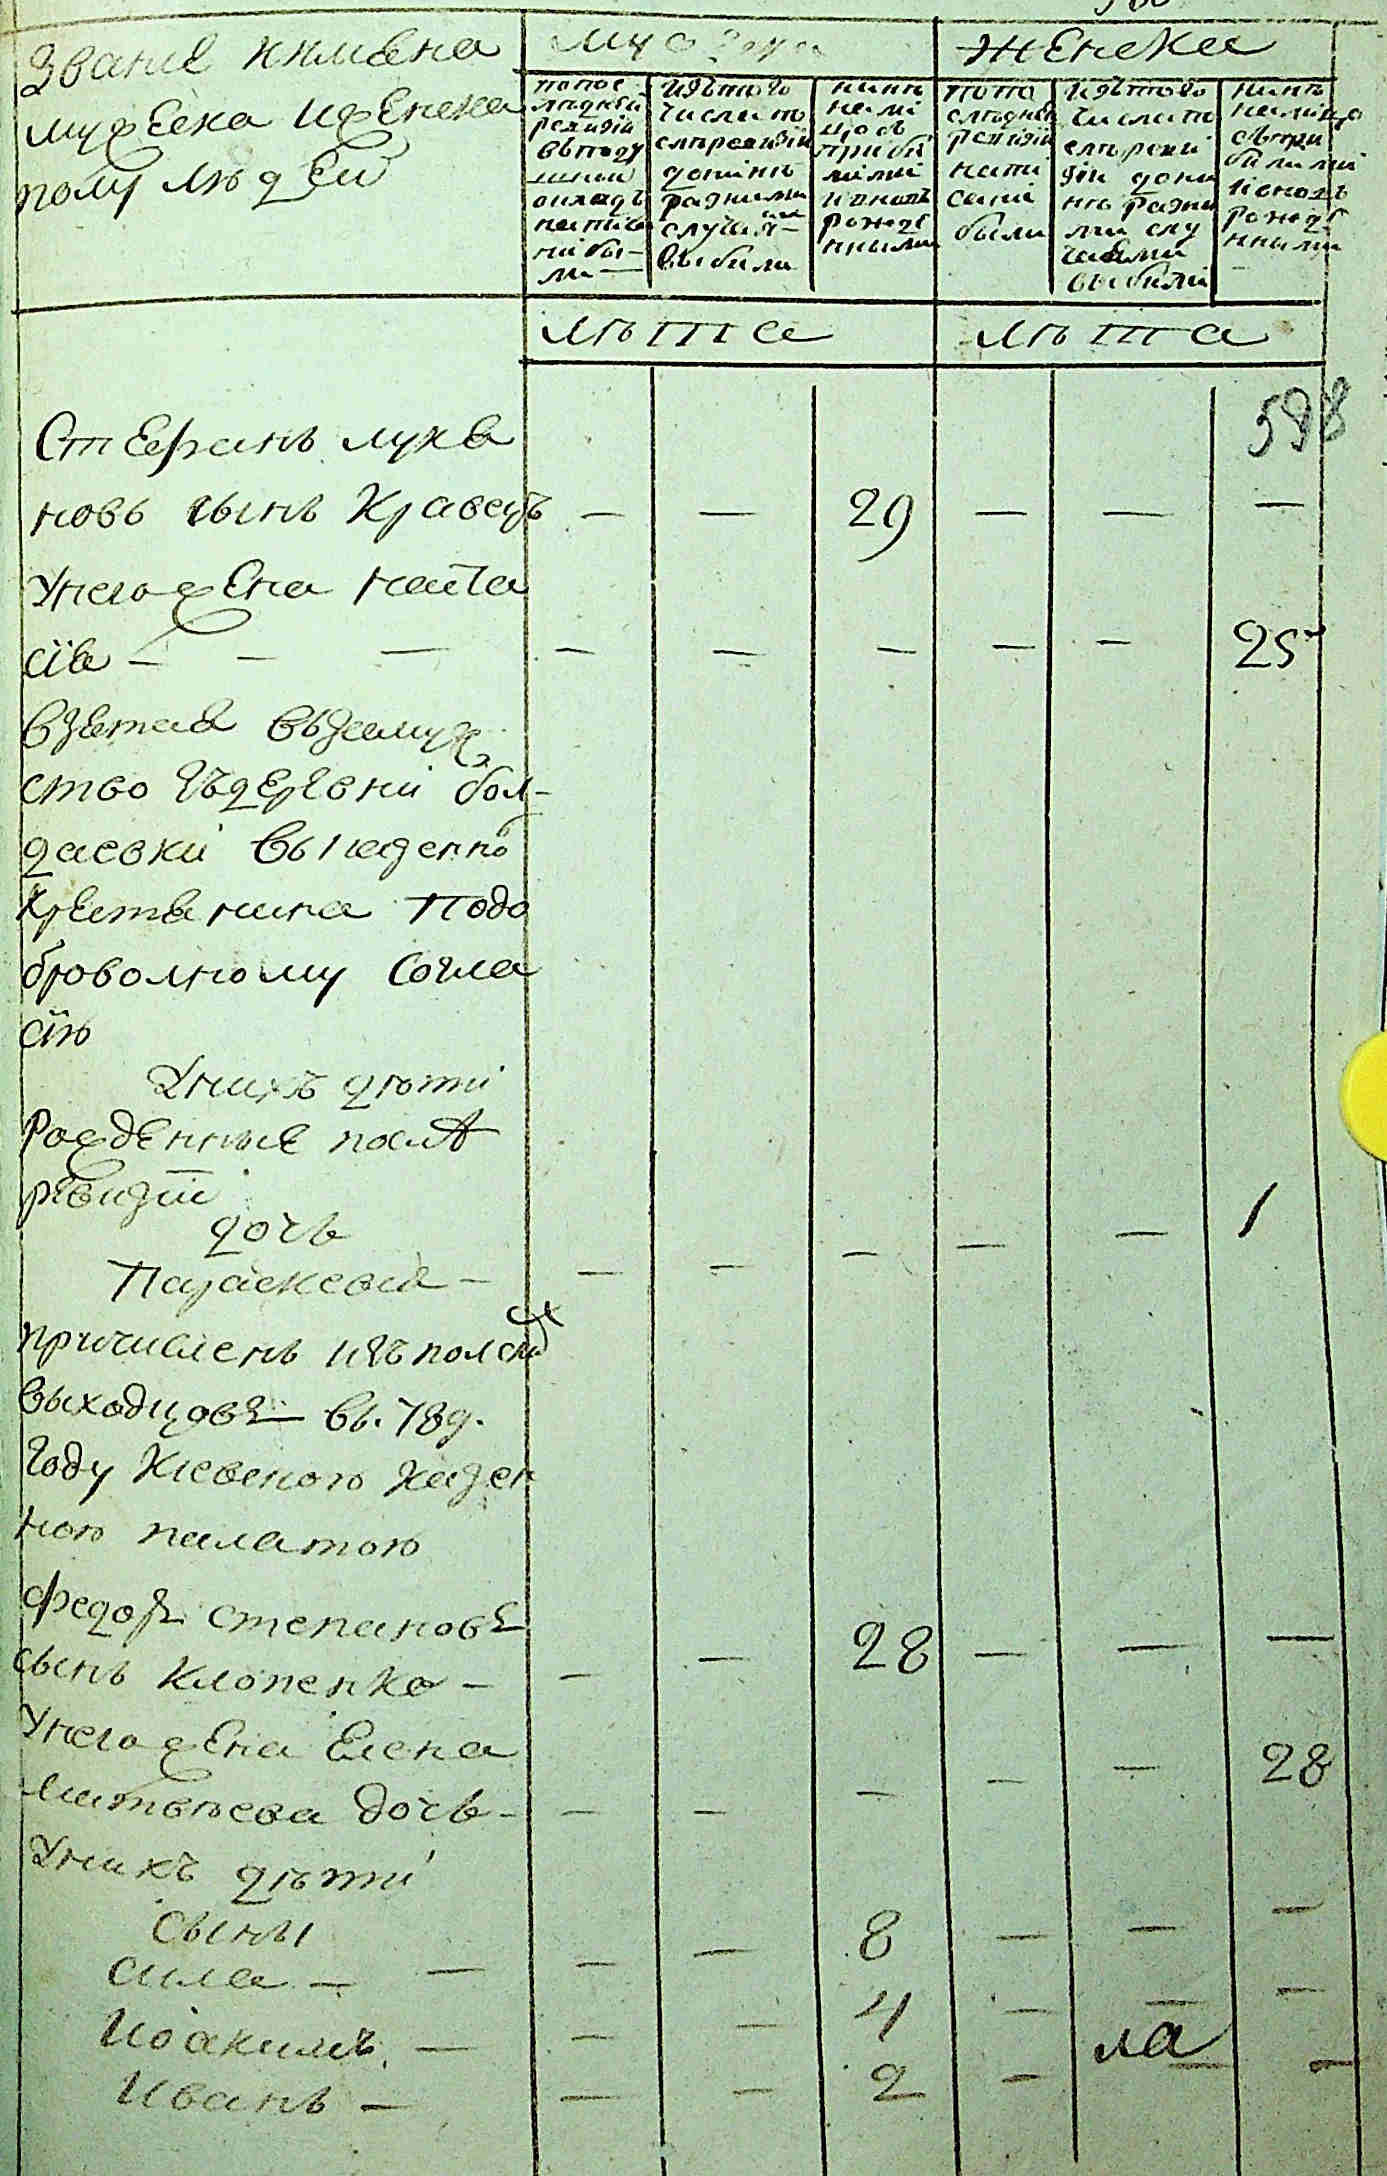 Званіе и имѣна
мужеска и женска
полу людей
Мужеска
женска
по пос
лѣдней
ревизіи
въ поду
шный
окладъ
написа
ни бы-
ли —
изъ того
числа по
слѣ ревизіи
до нинѣ
разними
случаями
выбили
нинѣ
на лі
цо съ
прибы
лими
и вновь
рожде
нними
по по
слѣдней
ревизіи
напи
сани
были
изъ того
числа по
слѣ реви
зіи до ни
нѣ разни
ми слу
чаями
выбили
нинѣ
на ліцо
съ при
билими
и вновь
рожде
нними
лѣта
лѣта
598
Стефанъ лукя
новъ сынъ Кравецъ — — 29 — — —
У него жена наста
сія — — — — — — — — 25
взятая въ замуж
ство зъ деревни бол-
даевки въ казенно
крестянина по до
бровольному согла
сію
У нихъ дѣти
рожденные послѣ
ревизіи
дочь
Параскевія — — — — — — 1
причисленъ изъ полскихъ
выходцовъ въ 789.
году Киевскою казен
ною палатою
Федоръ степановъ
сынъ Клопенко — — — 28 — — —
У него жена Елена
матвѣева дочь — — — — — — 28
У нихъ дѣти
сыны
сила — — — — 8 — — —
Иоакимъ — — — 4 — — —
Иванъ — — — 2 — — —
ла